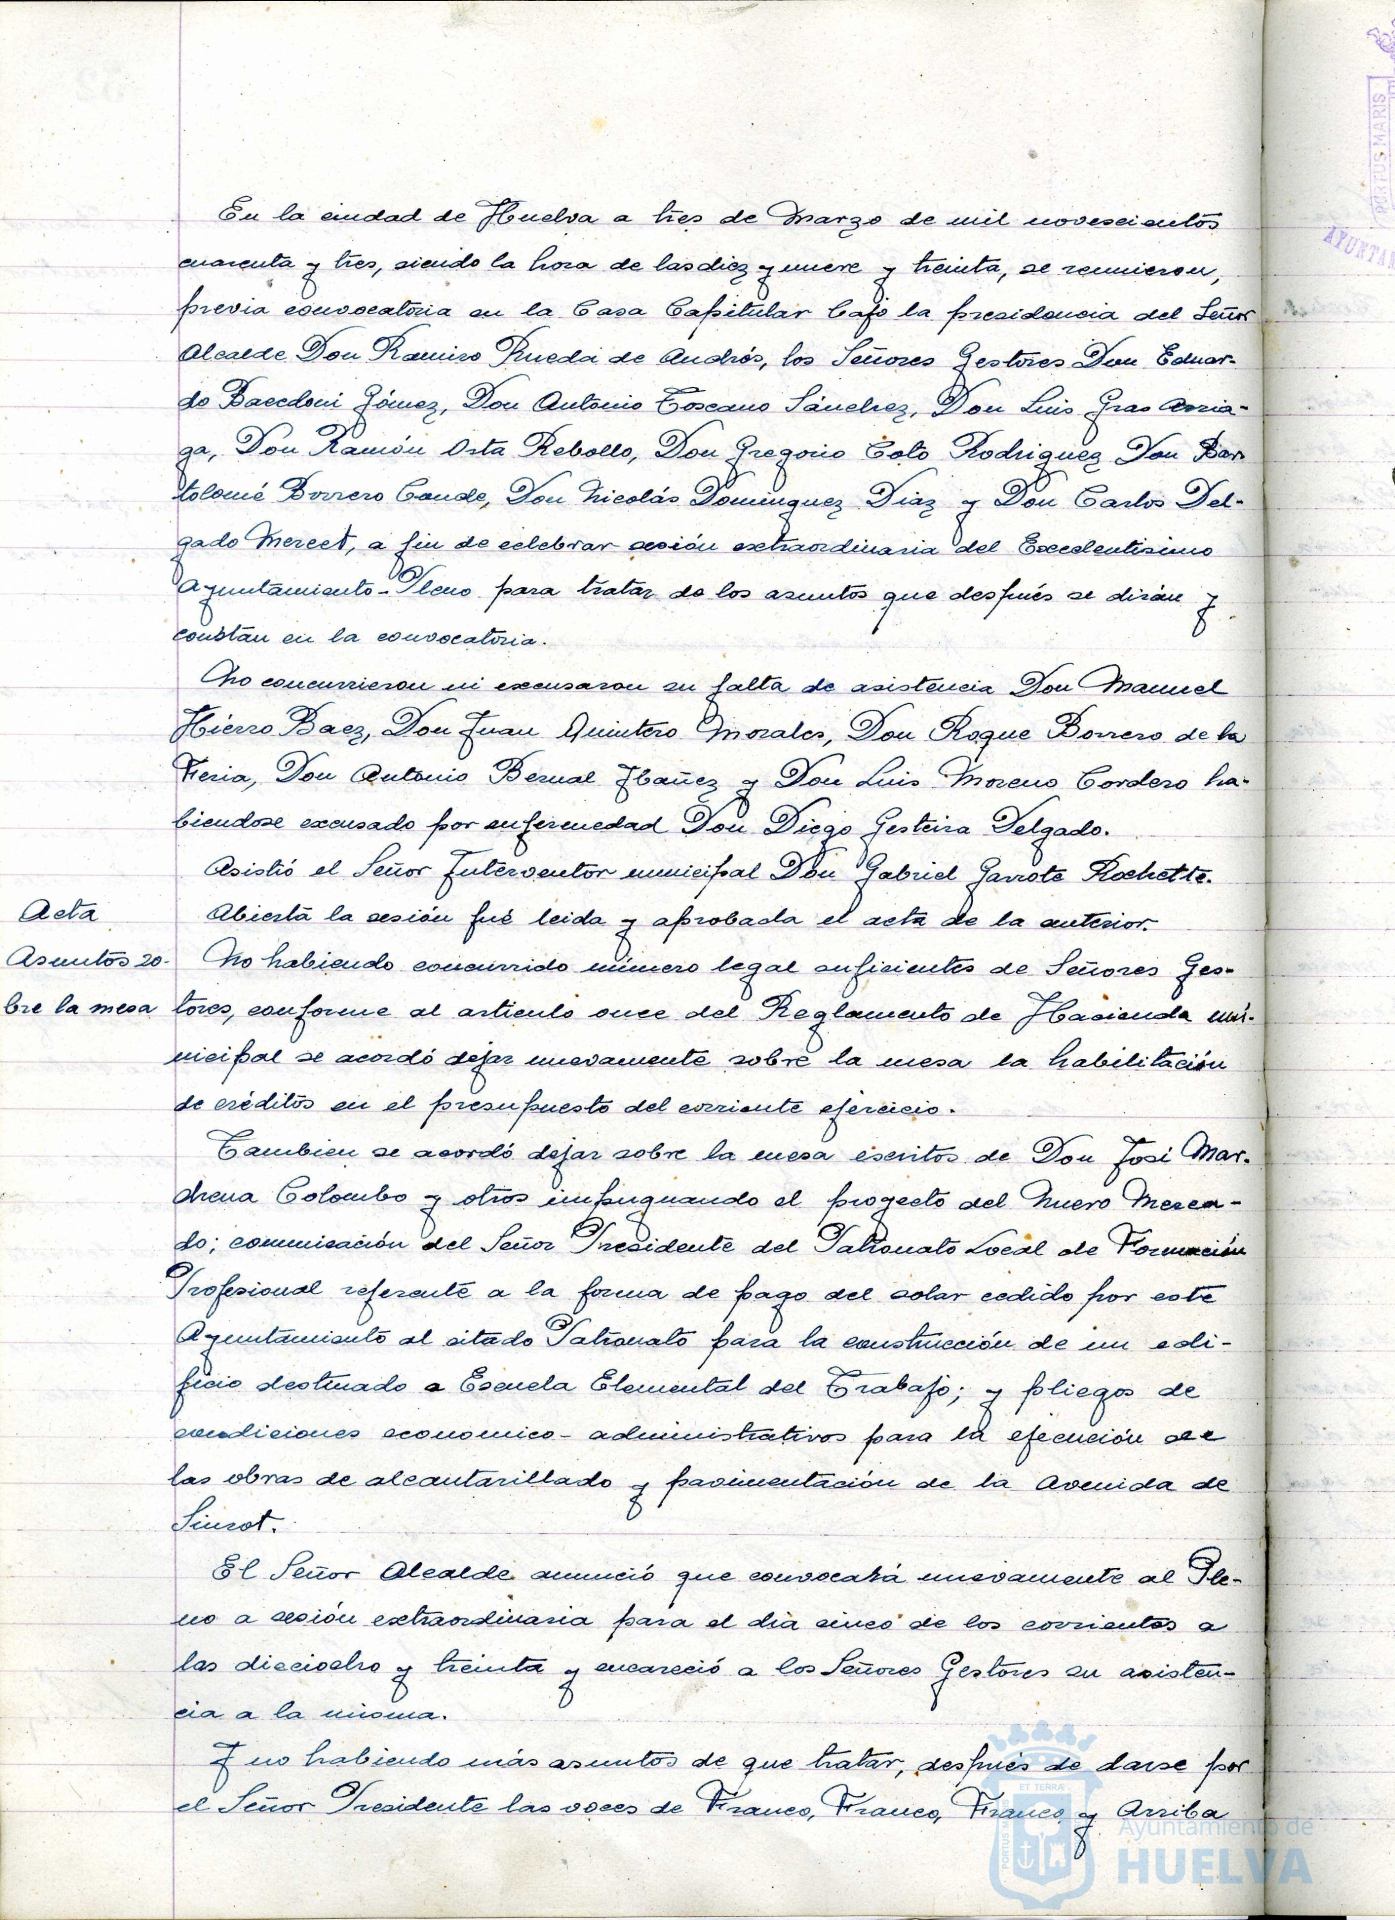 En la ciudad de Huelva a tres de Marzo de mil novescientos
cuarenta y tres, siendo la hora de las diez y nueve y treinta, se reunieron,
previa convocatoria en la Casa Capitular bajo la presidencia del Señor
Alcalde Don Ramiro Rueda de Andrés, los Señores Gestores Don Eduar-
do Baccdoni Gómez, Don Antonio Toscano Sánchez, Don Luis Gras Arria-
ga, Don Ramón Orta Rebollo, Don Gregorio Coto Rodriguez Don Bar
tolomé Borrero Conde, Don Nicolás Dominguez Diaz y Don Carlos Del-
gado Mercet, a fin de celebrar sesión extraordinaria del Excelentisimo
Ayuntamiento-Pleno para tratar de los asuntos que después se dirán y
constan en la convocatoria.
No concurrieron ni excusaron su falta de asistencia Don Manuel
Hierro Baez, Don Juan Quintero Morales, Don Roque Borrero de la
Feria, Don Antonio Bernal Ibañez y Don Luis Moreno Cordero ha-
biendose excusado por enfermedad Don Diego Gesteira Delgado.
Asistió el Señor Interventor municipal Don Gabriel Garrote Rochette.
Acta
Abierta la sesión fué leida y aprobada el acta de la anterior.
Asuntos so-
bre la mesa
No habiendo concurrido número legal suficientes de Señores Ges-
tores, conforme al articulo once del Reglamento de Hacienda mu-
nicipal se acordó dejar nuevamente sobre la mesa la habilitación
de créditos en el presupuesto del corriente ejercicio.
Tambien se acordó dejar sobre la mesa escritos de Don José Mar-
chena Colombo y otros impugnando el proyecto del Nuevo Merca-
do; comunicación del Señor Presidente del Patronato Local de Formación
Profesional referente a la forma de pago del solar cedido por este
Ayuntamiento al citado Patronato para la construcción de un edi-
ficio destinado a Escuela Elemental del Trabajo; y pliegos de
condiciones economico-administrativos para la ejecución de
las obras de alcantarillado y pavimentación de la Avenida de
Siurot.
El Señor Alcalde anunció que convocará nuevamente al Ple-
no a sesión extraordinaria para el dia cinco de los corrientes a
las dieciocho y treinta y encareció a los Señores Gestores su asisten-
cia a la misma.
Y no habiendo más asuntos de que tratar, después de darse por
el Señor Presidente las voces de Franco, Franco, Franco y Arriba
PORTUS MARIS
ET TERRÆ
Ayuntamiento de
HUELVA
PORTUS MARIS